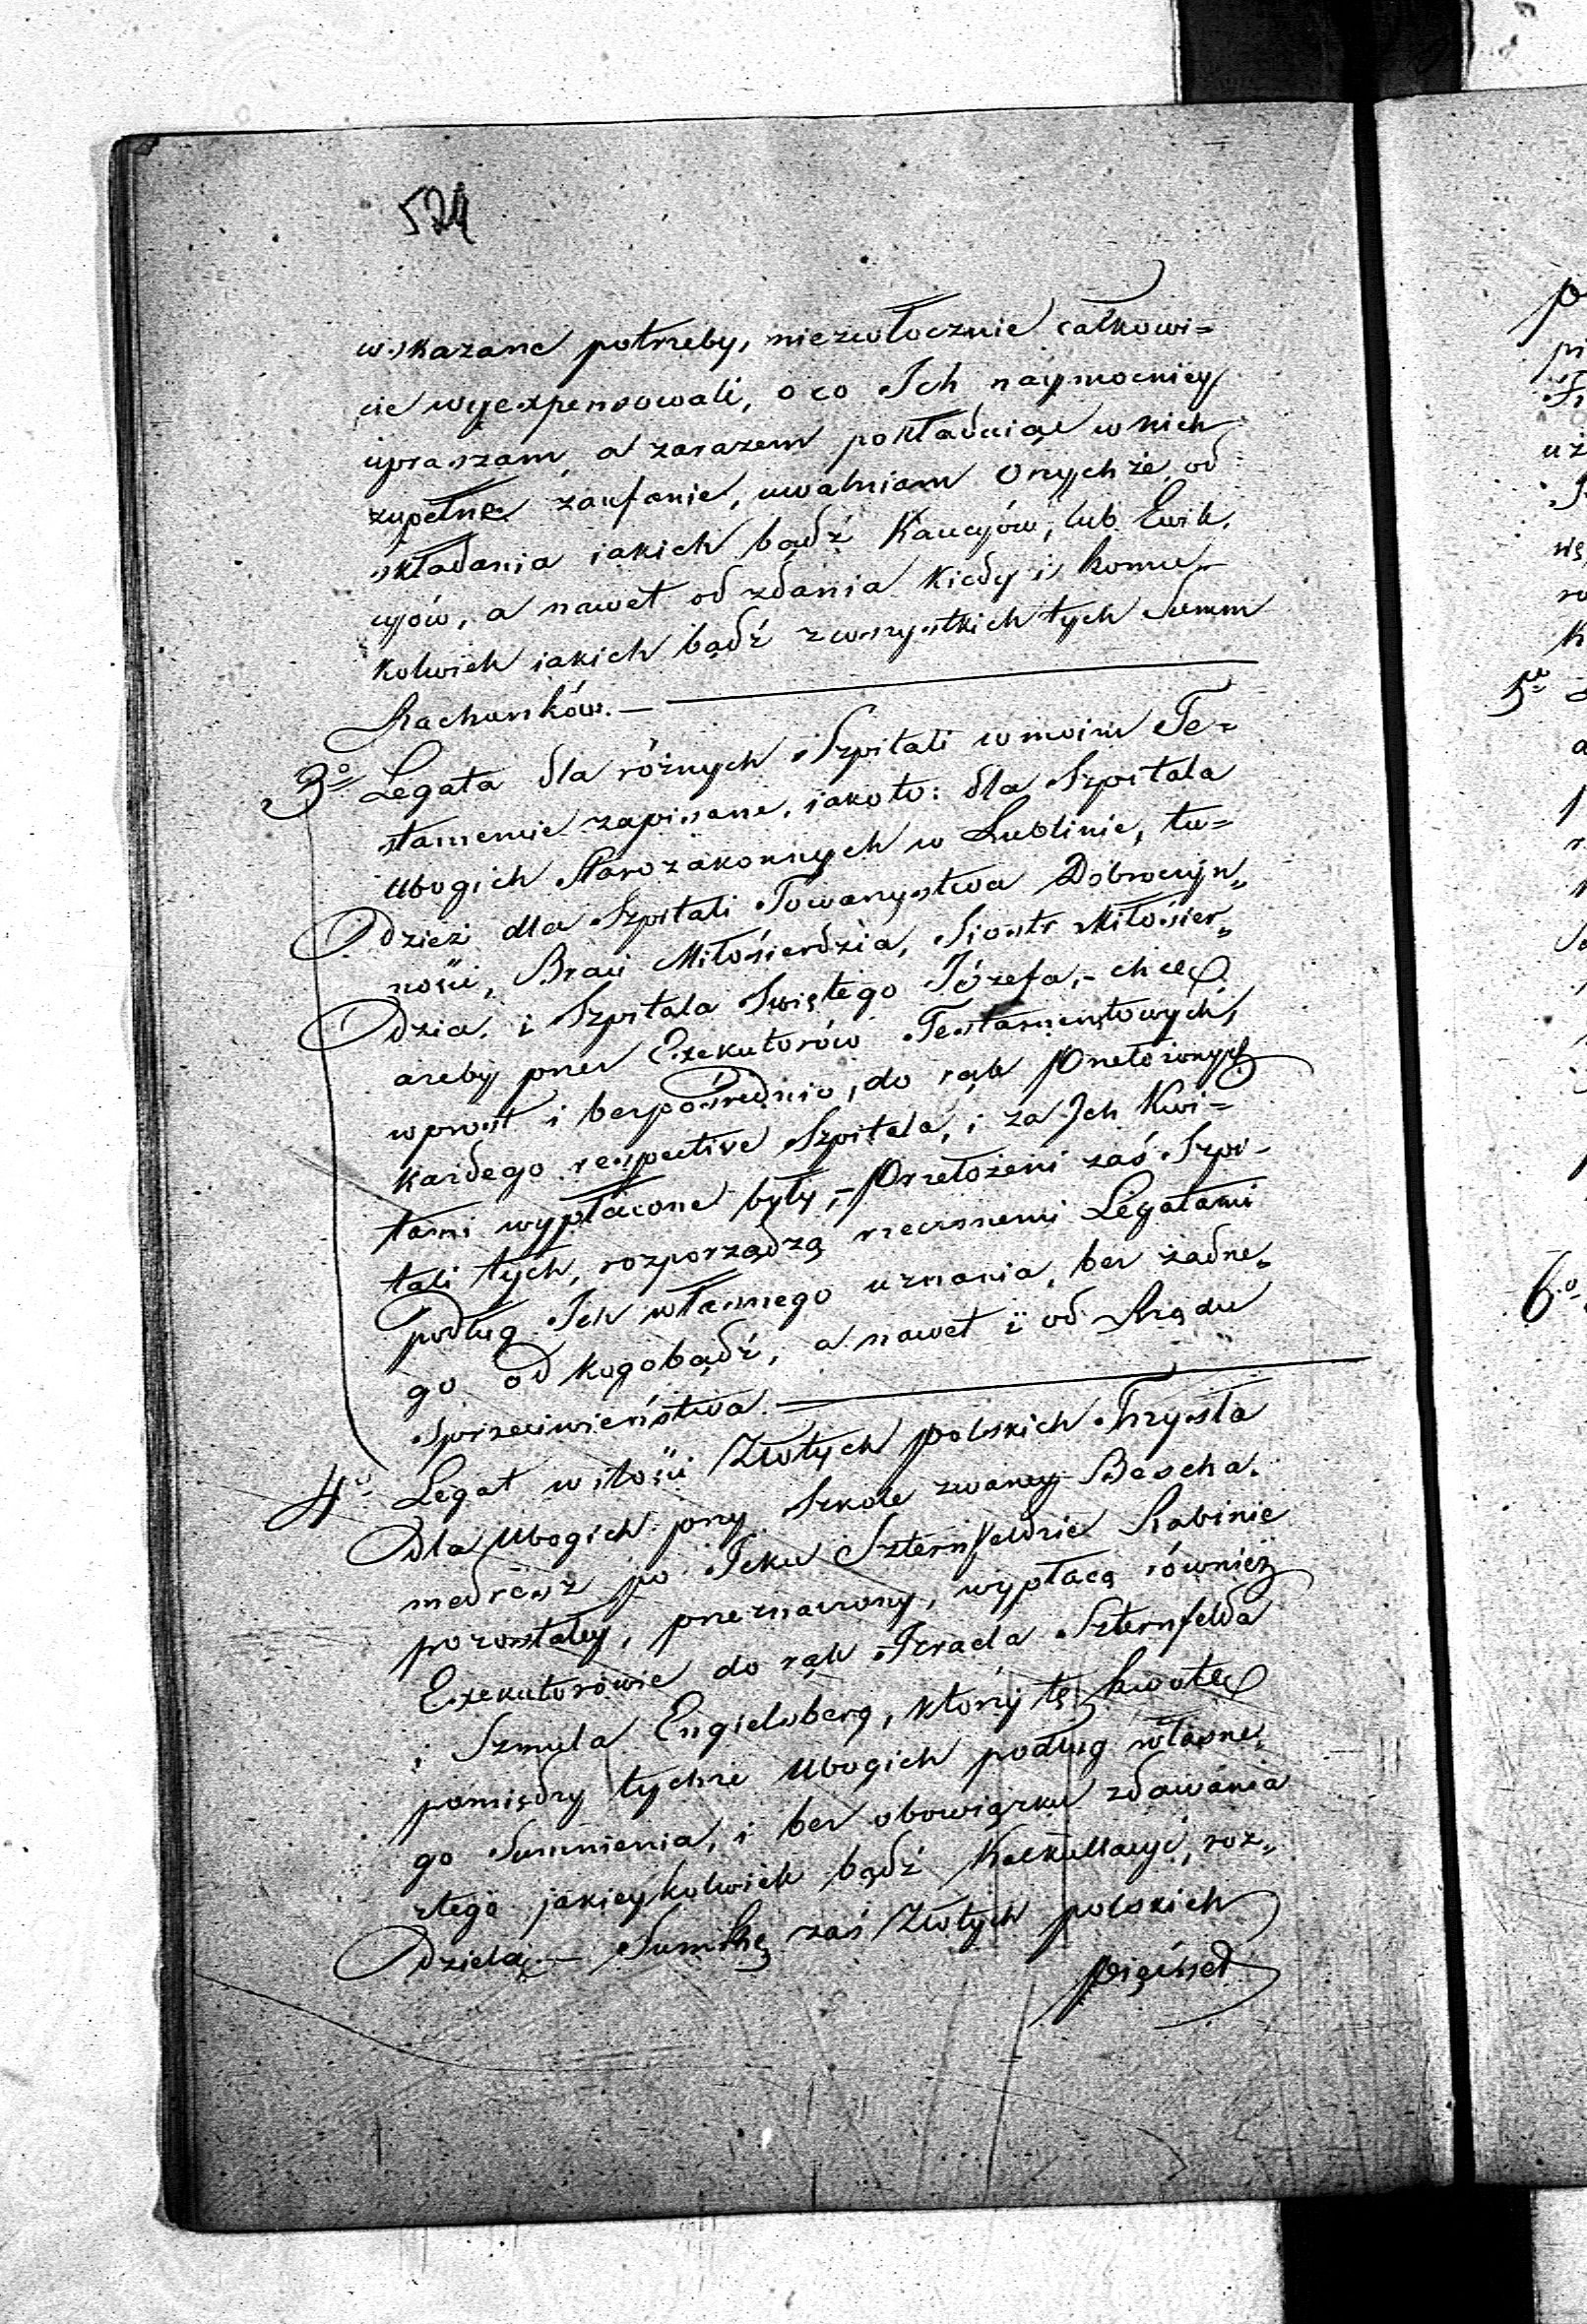 574
wskazane potrzeby, niezwłocznie całkowi=
cie wyexpensowali, o co Ich naymocniey
upraszam, a zarazem pokładaiąc w nich
zupełne zaufanie, uwalniam Onychże od
składania iakich bądź Kaucyów, lub Ewik,
cyów, a nawet od zdania kiedy i komu-
kolwiek iakich bądź z wszystkich tych Summ
Rachunków. —
3o Legata dla różnych Szpitali w moim Te=
stamencie zapisane, iako to: dla Szpitala
Ubogich Starozakonnych w Lublinie, tu=
dzież dla Szpitali Towarzystwa Dobroczyn„
ności, Braci Miłosierdzia, Siostr Miłosier„
dzia, i Szpitala Swiętego Józefa, - chcę
ażeby przez Exekutorów Testamentowych,
wprost i bezpośrednio, do rąk Przełożonych
każdego respective Szpitala, i za Ich Kwi-
tami wypłacone były, - Przełożeni zaś Szpi-
tali tych, rozporządzą rzeczonemi Legatami
podług Ich własnego uznania, bez żadne„
go od kogobądź, a nawet i od Rządu
Sprzeciwieństwa. —
4o Legat w ilości Złotych polskich Trzysta
dla Ubogich przy Szkole zwaney Bescha.
medresz po Icku Szternfeldzie Rabinie
pozostałey, przeznaczony, wypłacą również
Exekutorowie do rąk Izraela Szternfelda
i Szmula Engielsberg, którzy tę kwotę
pomiędzy tychże Ubogich podług własne„
go Sumnienia, i bez obowiązku zdawania
z tego jakieykolwiek bądź Kalkullacyi, roz„
dzielą. — Summę zaś Złotych polskich
pięćset